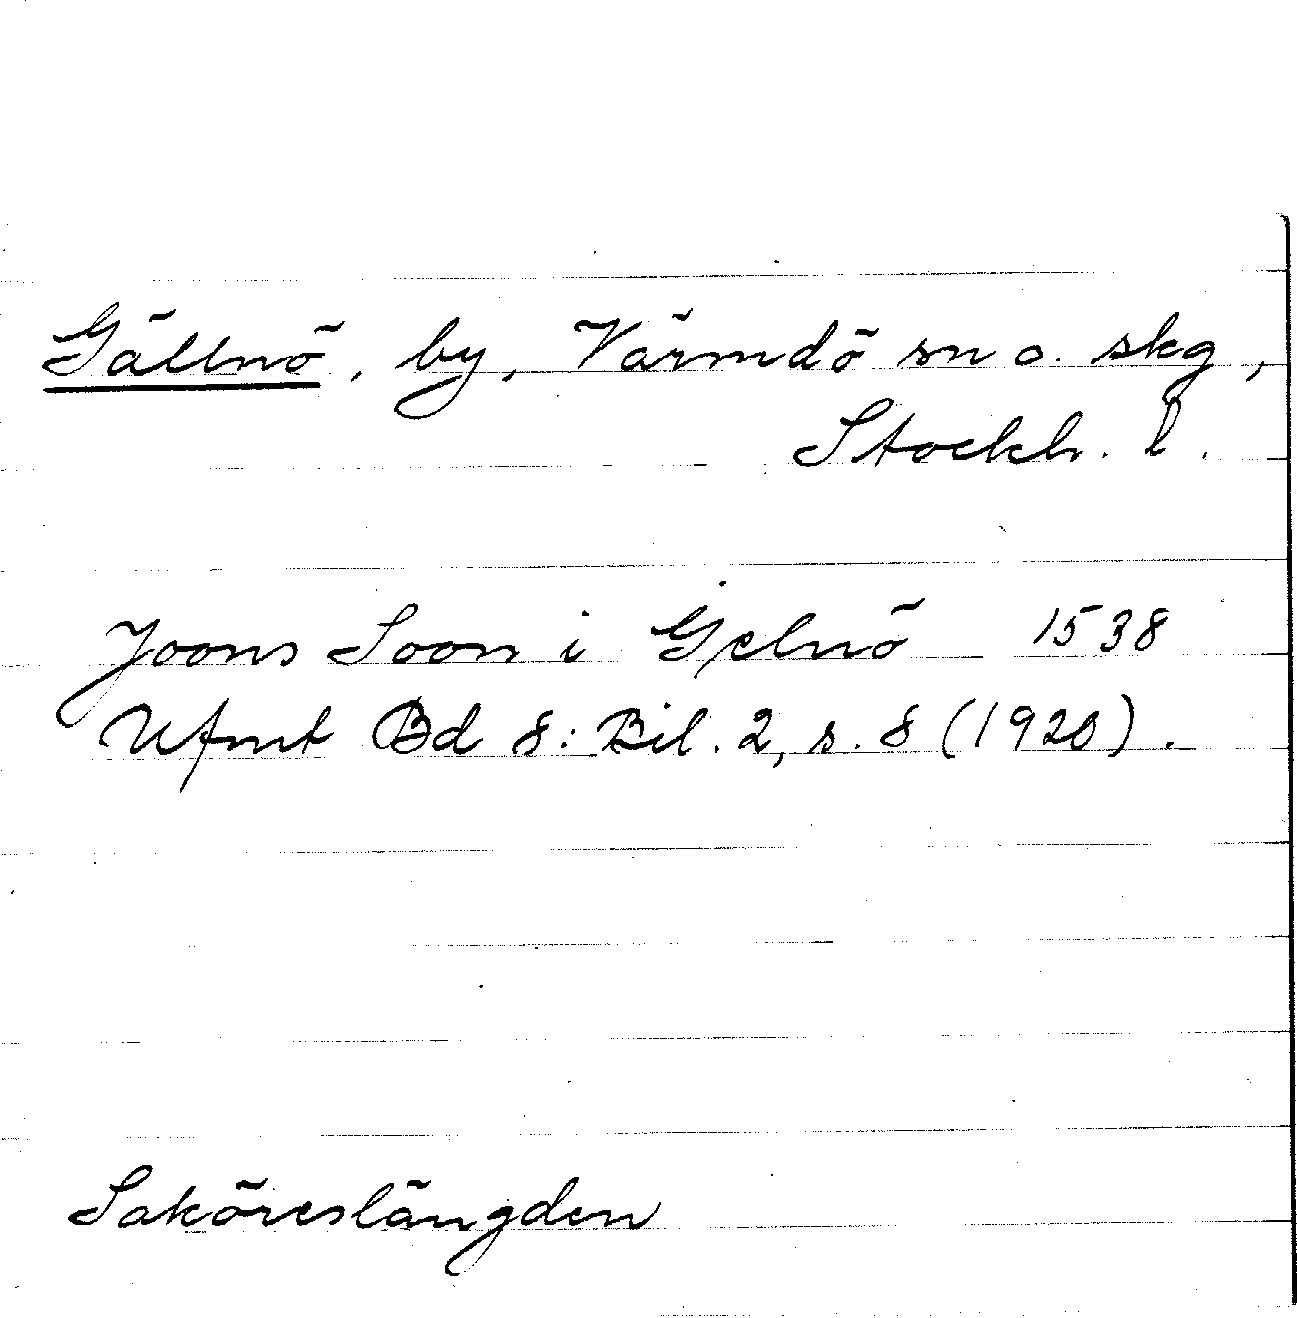 Gällnö, by, Värmdö sn o. skg,
Stockh. l.
Joons Soon i Gelnö 1538
Ufmt Bd 8: Bil. 2, s. 8 (1920).
Saköreslängden